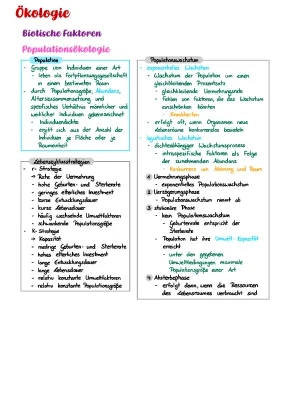 Ökologie
Biotische Faktoren
Populationsökologie
Population
- Gruppe von Individuen einer Art
- leben als Fortpflanzungsgesellschaft
in einem bestimmten Raum
- durch Populationsgröße, Abundanz,
Alterszusammensetzung und
spezifisches Verhältnis männlicher und
weiblicher Individuen gekennzeichnet
- Individuendichte
- ergibt sich aus der Anzahl der
Individuen je Fläche oder je
Raumeinheit
Lebenszyklusstrategien
- r- Strategie
→ Rate der Vermehrung
- hohe Geburten- und Sterberate
- geringes elterliches Investment
- kurze Entwicklungsdauer
- kurze Lebensdauer
- häufig wechselnde Umweltfaktoren
- schwankende Populationsgröße
- K- Strategie
→ Kapazität
- niedrige Geburten- und Sterberate
- hohes elterliches Investment
- lange Entwicklungsdauer
- lange Lebensdauer
- relativ konstante Umweltfaktoren
- relativ konstante Populationsgröße
Populationswachstum
- exponentielles Wachstum
- Wachstum der Population um einen
gleichbleibenden Prozentsatz
- gleichbleibende Vermehrungsrate
- Fehlen von Faktoren, die das Wachstum
einschränken könnten
- erfolgt oft, wenn Organismen neue
Lebensräume konkurrenzlos besiedeln
- logistisches Wachstum
- dichteabhängiger Wachstumsprozess
- intraspezifische Faktoren als Folge
der zunehmenden Abundanz
Konkurrenz um Nahrung und Raum
1 Vermehrungsphase
- exponentielles Populationswachstum
2 Verzögerungsphase
- Populationswachstum nimmt ab
3 stationäre Phase
- kein Populationswachstum
- Geburtenrate entspricht der
Sterberate
- Population hat ihre Umwelt Kapazität
erreicht
- unter den gegebenen
Umweltbedingungen maximale
Populationsgröße einer Art
4 Absterbephase
- erfolgt dann, wenn die Ressourcen
des Lebensraumes verbraucht sind